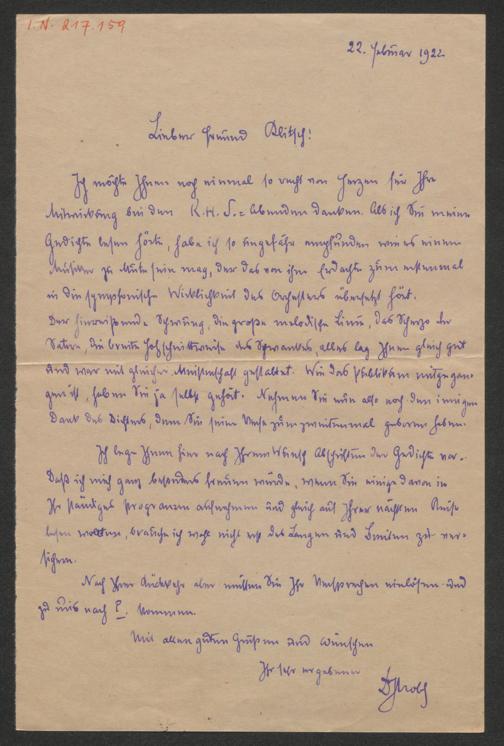 I. N. 217.159
22. Februar 1922
Lieber Freund Klitsch!
Ich möchte Ihnen noch einmal so recht von Herzen für Ihre
Mitwirkung bei den K.H.S.=Abenden danken. Als ich Sie meine
Gedichte lesen hörte, habe ich so ungefähr empfunden wie es einem
Musiker zu Mute sein mag, der das von ihm Erdachte zum erstenmal
in die symphonische Wirklichkeit des Orchesters übersetzt hört.
Der hinreißende Schwung, die große melodische Linie, das Scherzo der
Satire, die breite Holzschnittweise des Schwankes, alles lag Ihnen gleich gut
und war mit gleicher Meisterschaft gestaltet. Wie das Publikum mitgegan-
gen ist, haben Sie ja selbst gehört. Nehmen Sie nun also noch den innigen
Dank des Dichters, dem Sie seine Verse zum zweitenmal geboren haben.
Ich lege Ihnen hier nach Ihrem Wunsch Abschriften der Gedichte vor.
Daß ich mich ganz besonders freuen würde, wenn Sie einige davon in
Ihr ständiges Programm aufnehmen und gleich auf Ihrer nächsten Reise
lesen wollten, brauche ich wohl nicht erst des Langen und Breiten zu ver-
sichern.
Nach Ihrer Rückkehr aber müssen Sie Ihr Versprechen einlösen und
zu uns nach P. kommen.
Mit allen guten Grüßen und Wünschen
Ihr sehr ergebener